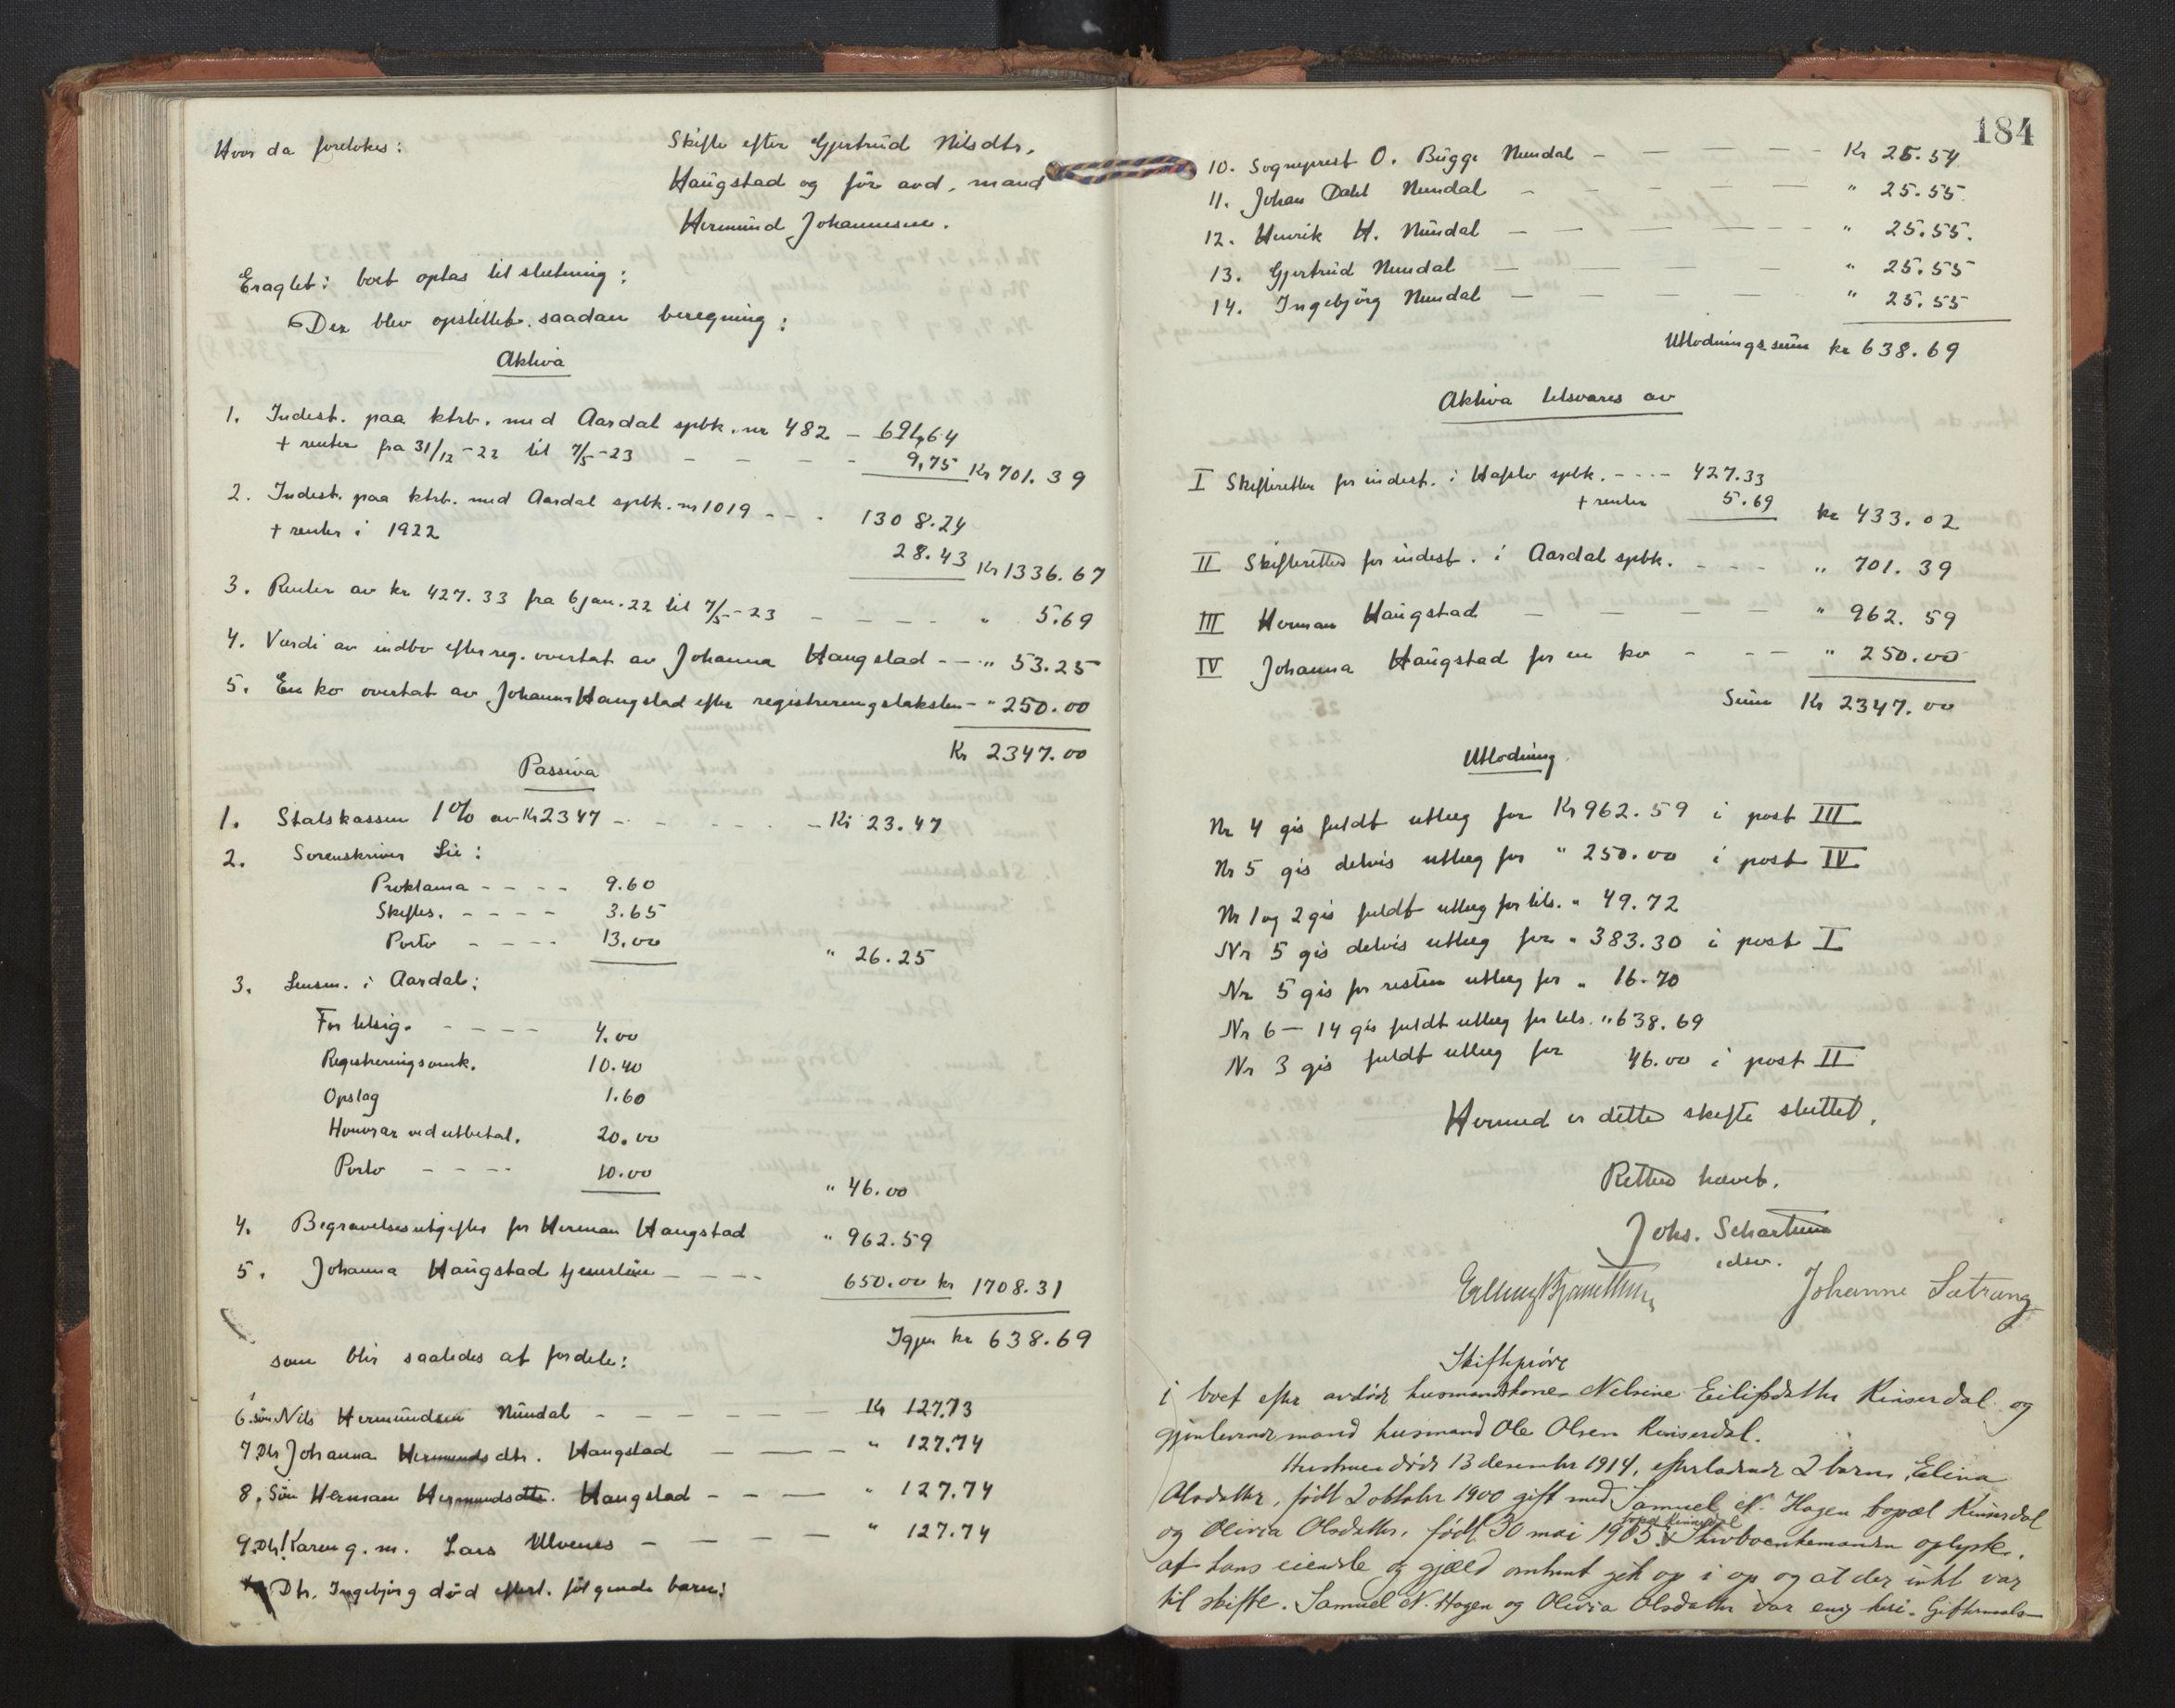 Hvor da foretokes:
Skifte efter Gjertrud Nilsdtr.
Haugstad og før avd. mand
Hermund Johannesen.
Eragtet: boet optas til slutning:
Der blev opstillet saadan beregning:
Aktiva
1. Indest. paa ktrb. med Aardal spbk. nr 482 – 691,64
+ renter fra 31/12-22 til 7/5-23 - - - - 9,75 Kr 701.39
2. Indest. paa ktrb. med Aardal spbk. nr 1019 - - - 1308.24
+ renter i 1922 28.43 Kr 1336.67
3. Renter av kr 427.33 fra 6 jan. 22 til 7/5-23 - - - - " 5.69
4. Verdi av indbo efter reg. overtat av Johanna Haugstad - - " 53.25
5. En ko overtat av Johanna Haugstad efter registreringstaksten - " 250.00
Kr 2347.00
Passiva
1. Statskassen 1% av Kr 2347 - - - - - Kr 23.47
2. Sorenskriver Lie:
Proklama - - - - 9.60
Skiftes. - - - - 3.65
Porto - - - - 13.00
" 26.25
3. Lensm. i Aardal:
For tilsig. - - - - 4.00
Registreringsomk. 10.40
Opslag 1.60
Honorar ved utbetal. 20.00
Porto - - - - 10.00
" 46.00
4. Begravelsesutgifter for Herman Haugstad " 962.59
5. Johanna Haugstad tjenerløn - - - - 650.00 kr 1708.31
Igjen kr 638.69
som blir saaledes at fordele:
6. søn Nils Hermundsen Nundal - - - - - - Kr 127.73
7. Dtr Johanna Hermundsdtr. Haugstad - - - " 127.74
8. Søn Herman Hermundsdtr. Haugstad - - - " 127.74
9. Dtr. Karen g. m. Lars Ulvenes - - - - " 127.74
Dtr. Ingebjørg død efterl. følgende barn:
184
10. Sogneprest O. Bugge Nundal - - - - - Kr 25.54
11. Johan Dahl Nundal - - - - - " 25.55
12. Henrik H. Nundal - - - - - " 25.55.
13. Gjertrud Nundal - - - - " 25.55
14. Ingebjørg Nundal - - - - " 25.55
Utlodningssum kr 638.69
Aktiva tilsvares av
I Skifteretten for indest. i Hafslo spbk. - - - - 427.33
+ renter 5.69 kr 433.02
II Skifteretten for indest. i Aardal spbk. - - - " 701.39
III Herman Haugstad - - - - " 962.59
IV Johanna Haugstad for en ko - - - " 250.00
Sum Kr 2347.00
Utlodning
Nr 4 gis fuldt utlæg for Kr 962.59 i post III
Nr 5 gis delvis utlæg for " 250.00 i post IV
Nr 1 og 2 gis fuldt utlæg for tils. " 49.72
Nr 5 gis delvis utlæg for " 383.30 i post I
Nr 5 gis for resten utlæg for " 16.70
Nr 6 – 14 gis fuldt utlæg for tils. " 638.69
Nr 3 gis fuldt utlæg for 46.00 i post II
Hermed er dette skifte sluttet.
Retten hævet.
Johs. Schartum
edsv.
Johanne Sætrang
Skifteprøve
i boet efter avdøde husmandskone Nelsine Eilifsdatter Kinserdal og
gjenlevende mand husmand Ole Olsen Kinserdal.
Hustruen døde 13 desember 1914, efterladende 2 barn, Elina
Olsdatter, født 2 oktober 1900 gift med Samuel N. Hagen bopæl Kinserdal
og Olivia Olsdatter, født 30 mai 1905 bopæl Kinserdal. Skivboenkemanden oplyste,
at hans eiendele og gjæld omtrent gik op i op og at der intet var
til skifte. Samuel N. Hagen og Olivia Olsdatter var enig heri. Giftermaals-